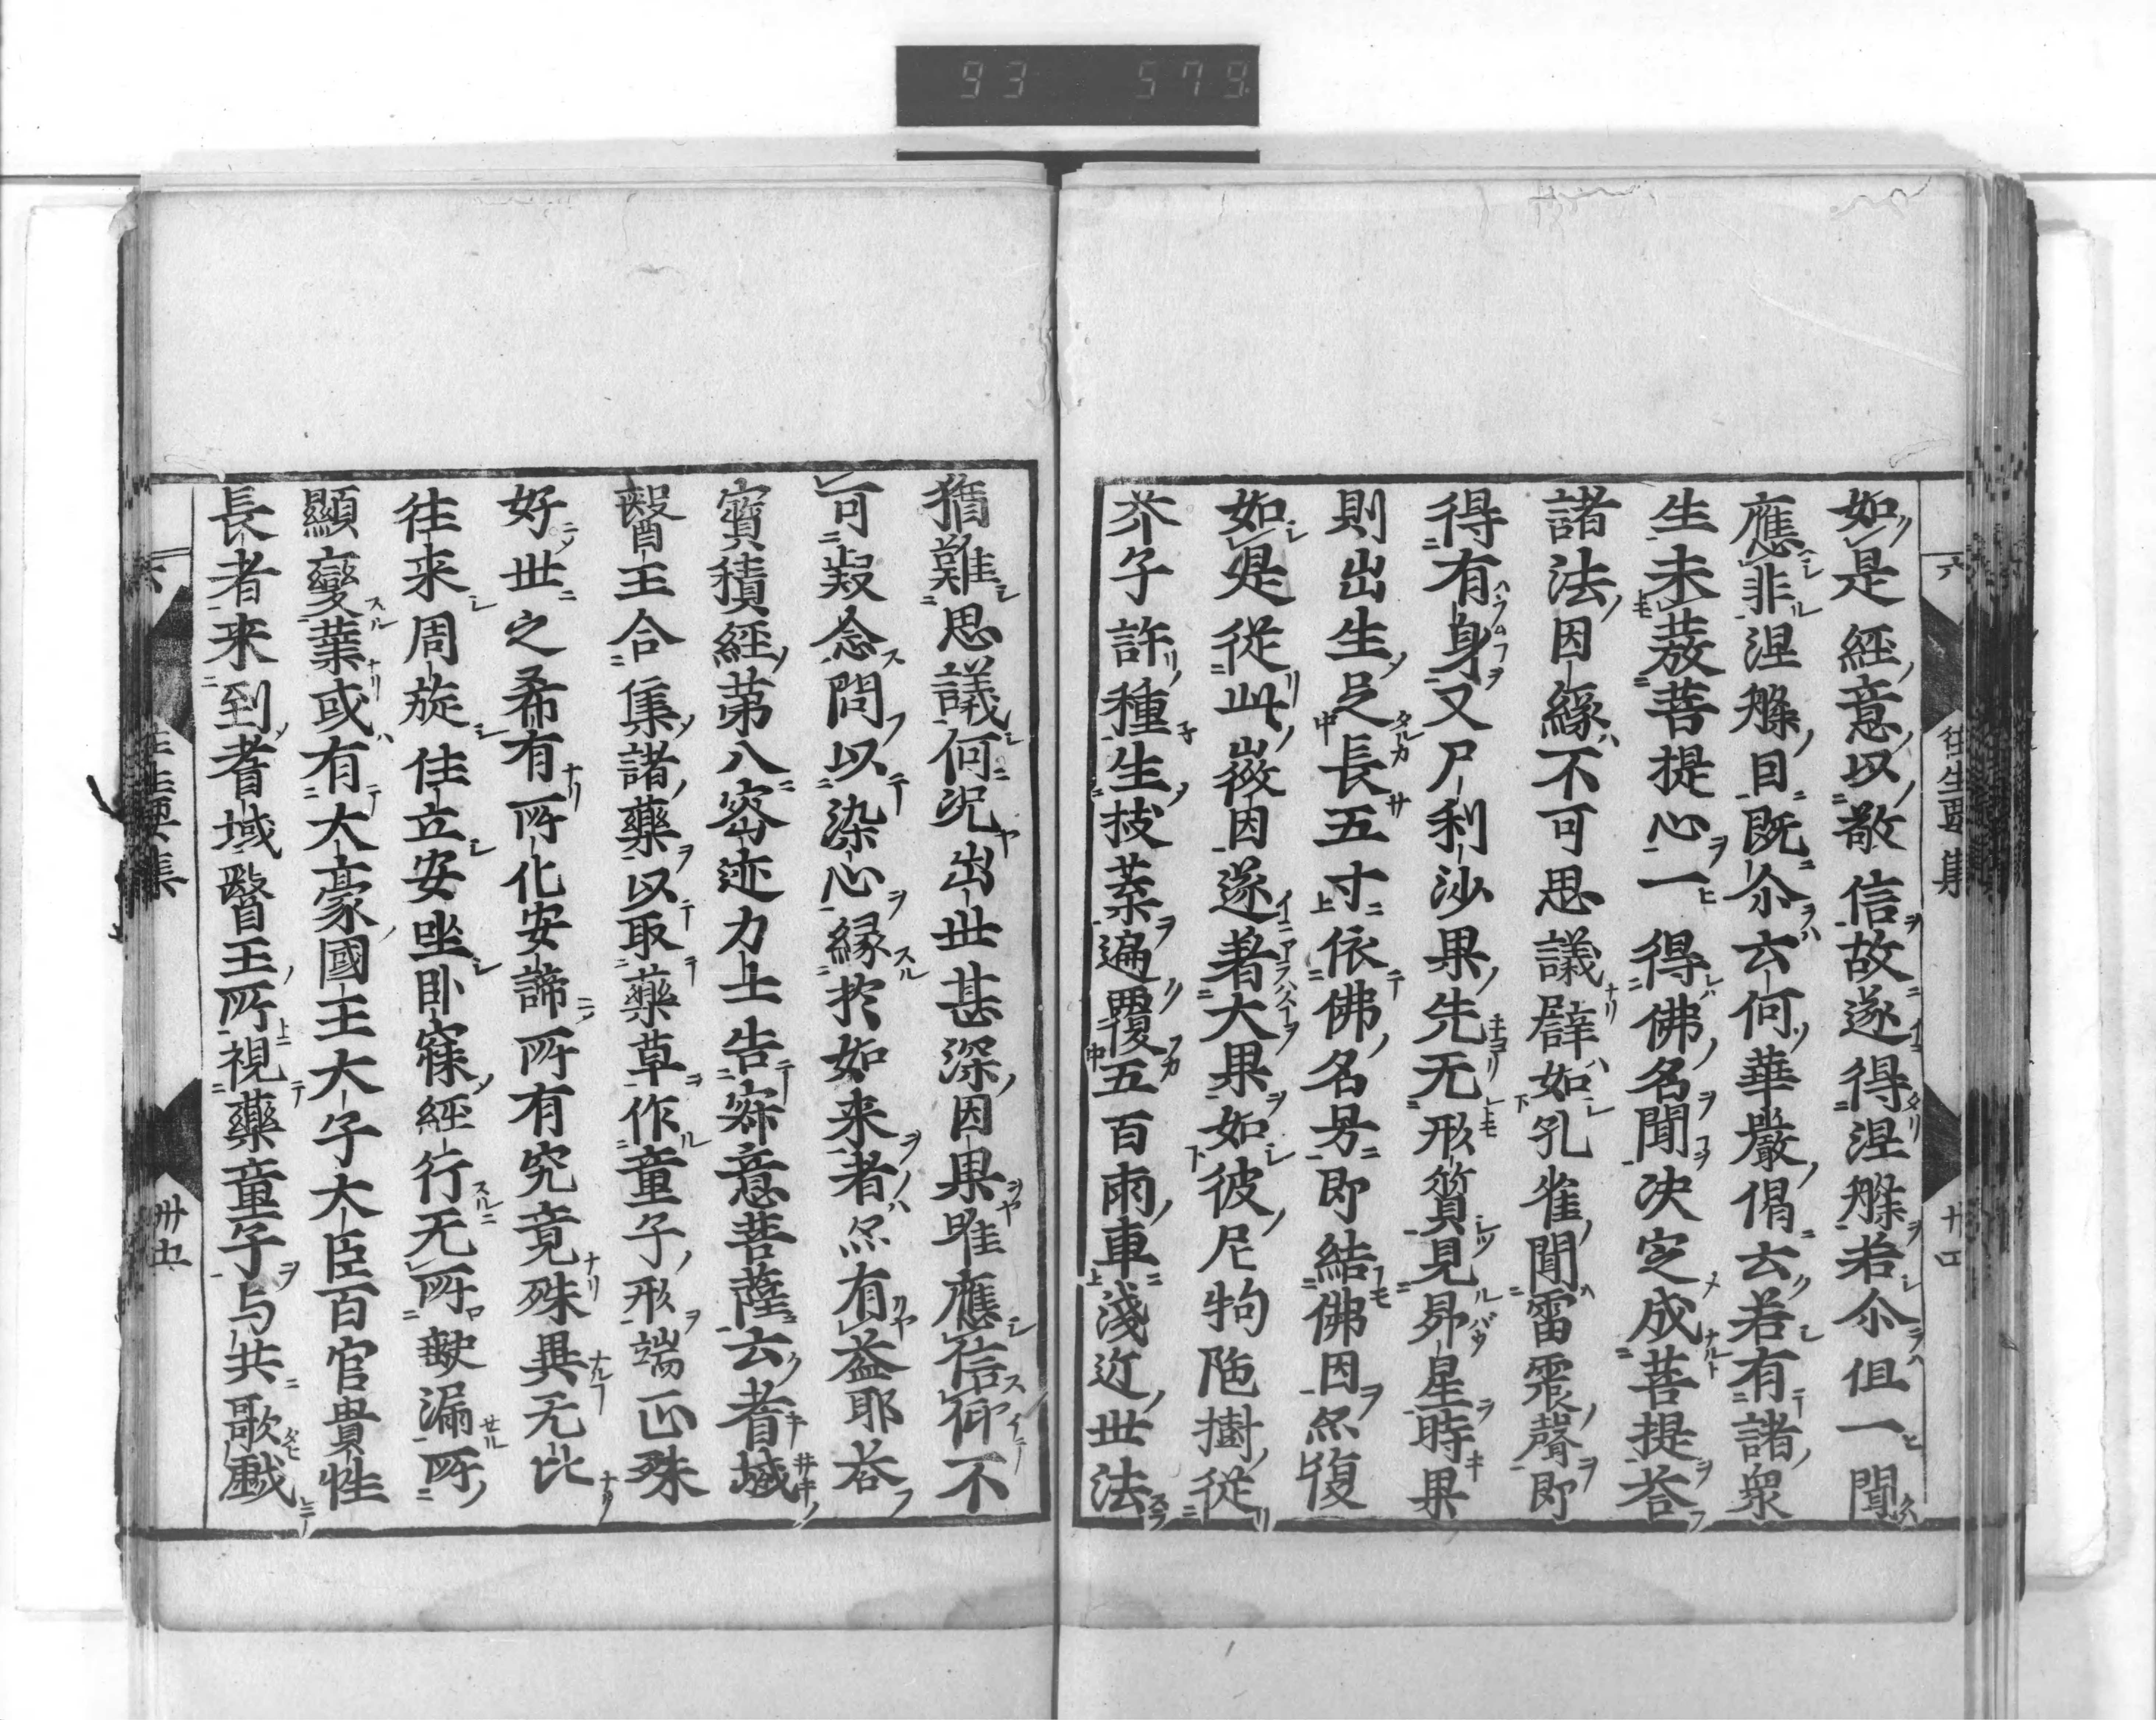 93 579
往生要集
如是經意以敬信故遂得涅槃若尒但一聞
應非涅槃因既尒云何華嚴偈云若有諸衆
生未發菩提心一得佛名聞决定成菩提荅
諸法因緣不可思議譬如孔雀聞雷震聲即
得有身又尸利沙果先无形質見昴星時果
則出生足長五寸依佛名号即結佛因亦復
如是從此微因遂著大果如彼尼拘陁樹從
芥子許種生枝葉遍覆五百兩車淺近世法
猶難思議何况出世甚深因果唯應信仰不
可疑念問以染心緣於如来者亦有益耶荅
寶積經第八密迹力士告寂意菩薩云耆域
醫王合集諸藥以取藥草作童子形端正殊
好世之希有所化安諦所有究竟殊異无比
往来周旋住立安坐卧寐經行无所缺漏所
顯變業或有大豪國王大子大臣百官貴性
長者来到耆域醫王所視藥童子与共歌戲
六 往生要集 卅五